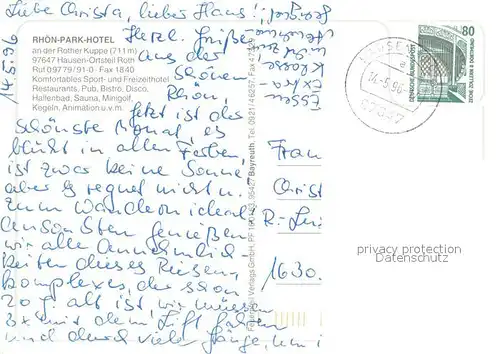 Liebe Christa, lieber Hans!
14.5.96
RHÖN-PARK-HOTEL
an der Rother Kuppe (711 m)
97647 Hausen-Ortsteil Roth
Ruf 0 97 79 / 91-0 · Fax 1840
Komfortables Sport- und Freizeithotel
Restaurants, Pub, Bistro, Disco,
Hallenbad, Sauna, Minigolf,
Kegeln, Animation u.v.m.
Herzl. Grüße
aus der
schönen
Rhön
Jetzt ist der
schönste Monat, es
blüht in allen Farben
ist zwar keine Sonne
aber es regnet nicht u.
zum Wandern ideal.
Ansonsten genießen
wir alle Annehmlich-
keiten dieses Riesen-
komplexes, der schon
20 J. alt ist, wir müssen
3x mit dem Lift fahren
und durch viele Gänge, um
Essen
Extra
Klasse
80
DEUTSCHE BUNDESPOST
ZECHE ZOLLERN II DORTMUND
HAUSEN
14.-5.96
97647
Bayreuth, Tel. 0921/
Frau
Christ
R.-
1630
privacy protection
Datenschutz